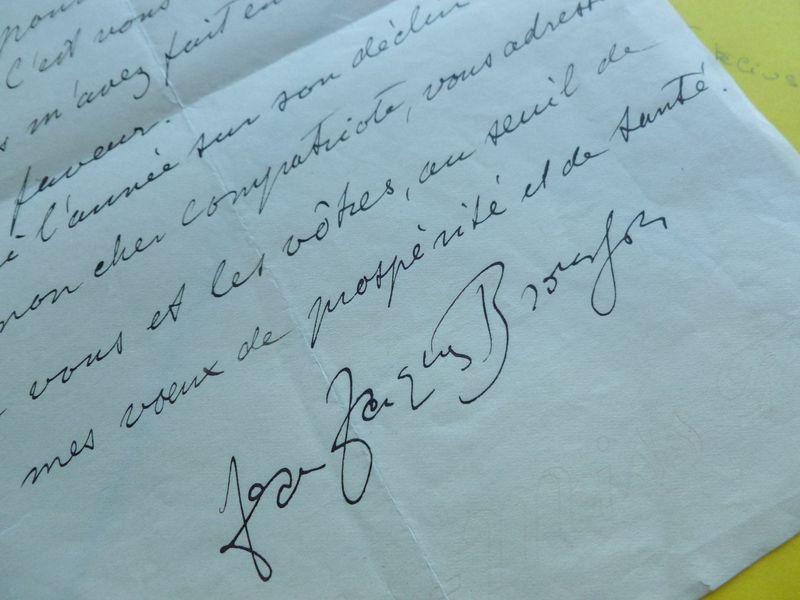 C'est vous
m'avez fait en
faveur.
l'année sur son déclin
mon cher compatriote, vous adresse
vous et les vôtres, au seuil de
mes vœux de prospérité et de santé.
Jean Jacques Brousson